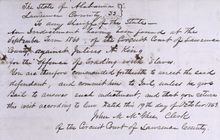 The State of Alabama }
Lawrence County } SS.
To any Sheriff of the State—
An Indictment having been found at the
September Term 1863 of the Circuit Court of Lawrence
County against
for the offence of trading with Slaves.
You are therefore commanded forthwith to arrest the said
defendant, and commit him to Jail unless he give
Bail to answer such indictment, and that you return
this writ according to law. Dated this day of October 1863
John M. Clerk
of the Circuit Court of Lawrence County.